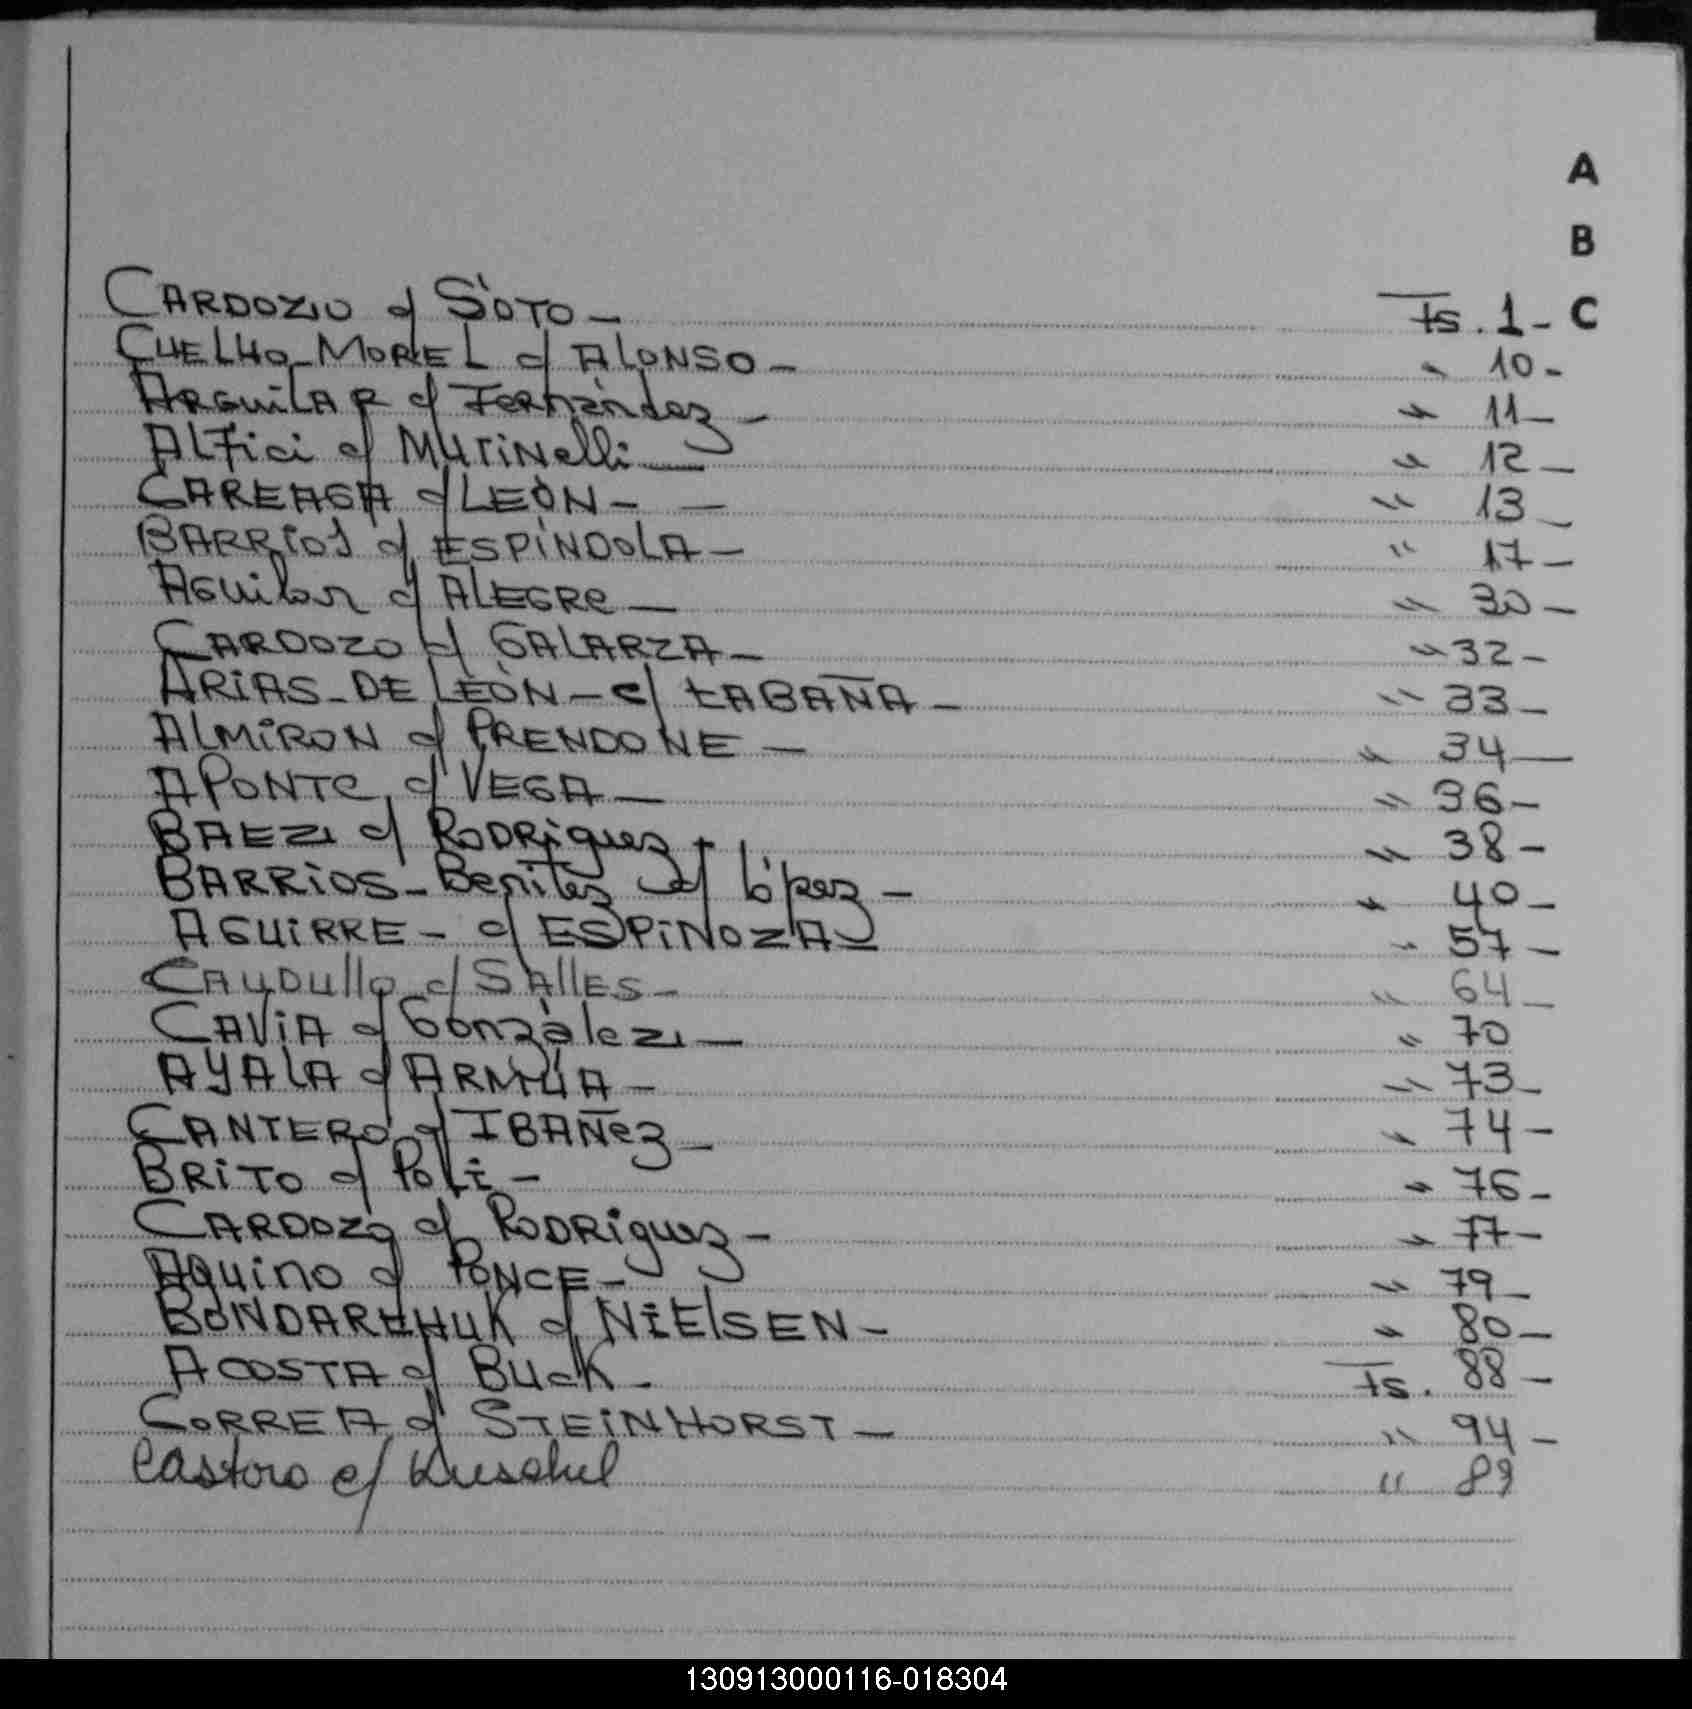 A
B
C
CARDOZO c/ SOTO - Fs. 1-
CUELHO-MOREL c/ ALONSO - " 10-
ARGUILAR c/ Fernández - " 11-
ALFici c/ MUTiNelli - " 12-
CAREAGA c/ LEÓN - - " 13-
BARRiOS c/ ESPÍNDOLA - " 17-
AGuilar c/ ALEGRe - " 30-
CARDOZO c/ GALARZA - " 32-
ARiAS-DE LEÓN - c/ LABAÑA - " 33-
ALMiRON c/ PRENDONE - " 34-
APONTe c/ VEGA - " 36-
BAEZ c/ RODRiguez - " 38-
BARRiOS-Benítez c/ López - " 40-
AGUiRRE - c/ ESPiNOZA - " 57-
CAUDullo c/ SAllES - " 64-
CAViA c/ González - " 70
AYALA c/ ARMÚA - " 73-
CANTERO c/ IBAÑez - " 74-
BRiTO c/ POLI - " 76-
CARDOZO c/ RODRíguez - " 77-
AQuino c/ PONCE - " 79-
BONDAREHUK c/ NiElSEN - " 80-
ACOSTA c/ BUcK - Fs. 88-
CORREA c/ STEiNHORST - " 94-
Castoro c/ " 89
130913000116-018304